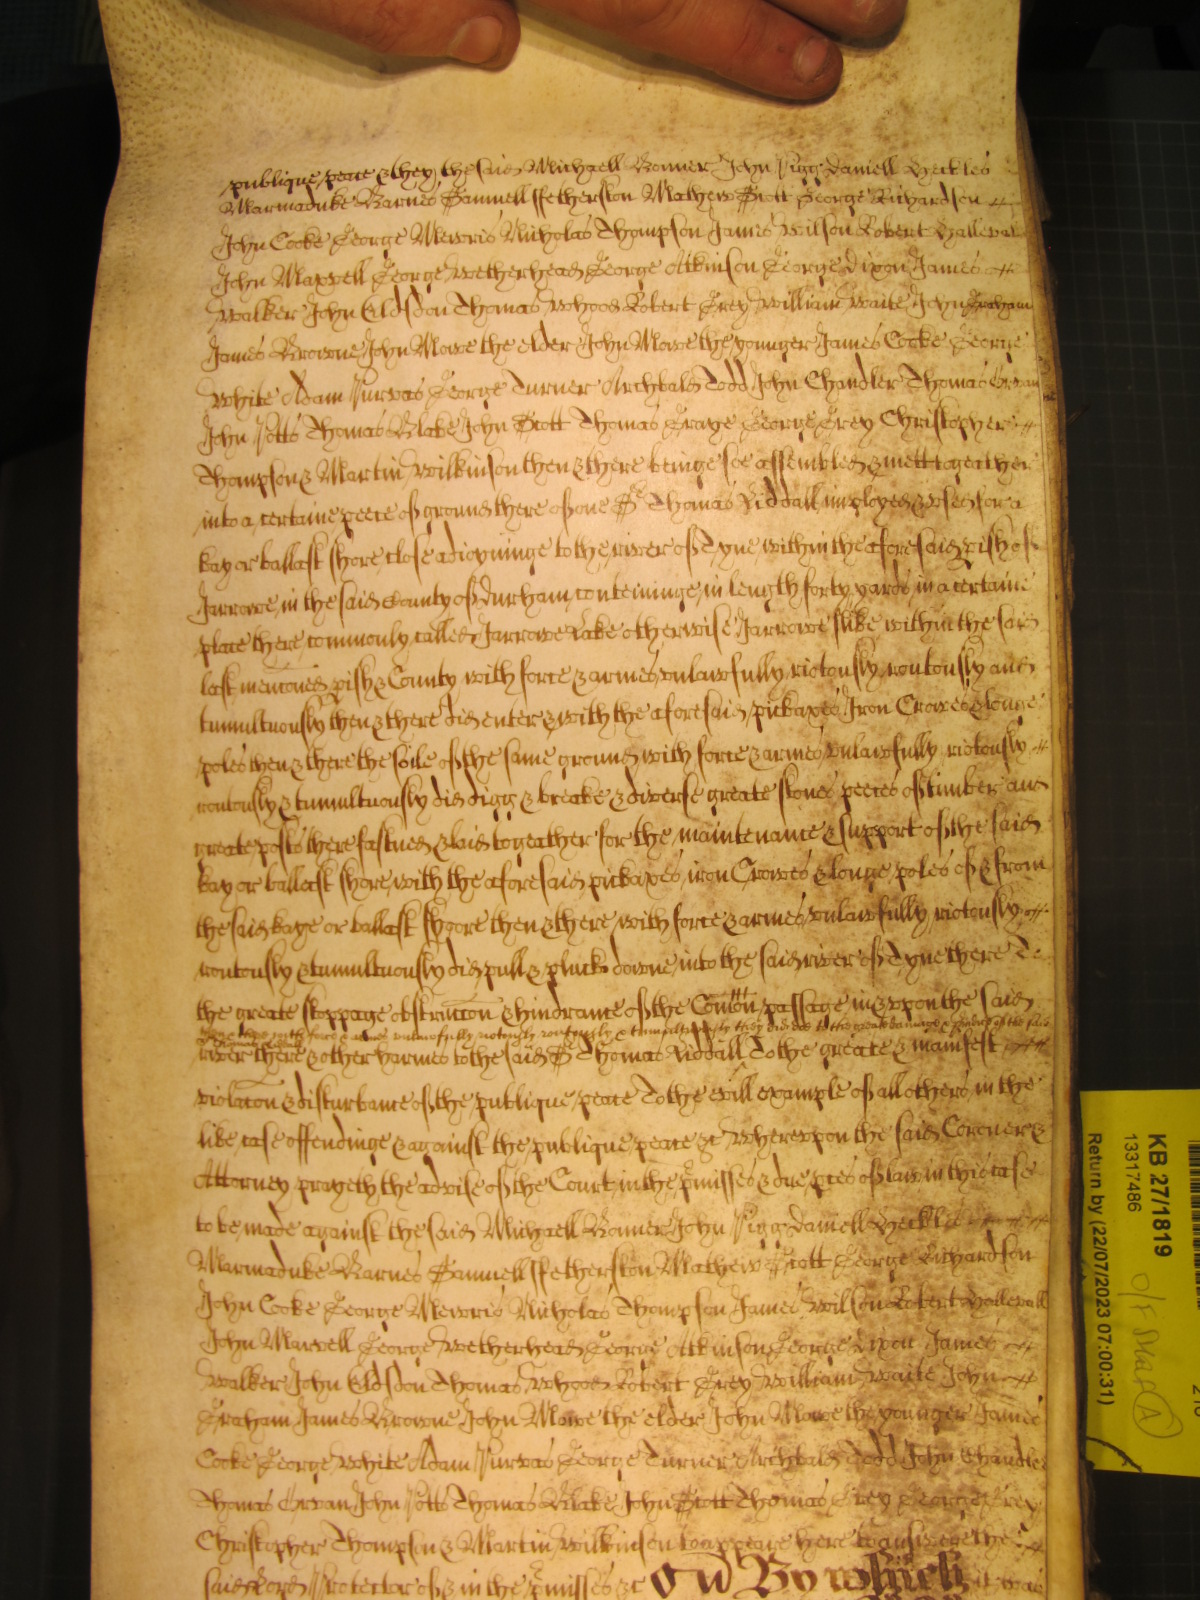 publique peace & they the said Michaell Bonner John Pigg Daniell Heckles
Marmaduke Barnes Samuell ffetherston Mathew Scott George Richardson
John Cooke George Mewris Nicholas Thompson James Wilson Robert Hallewall
John Maxwell George Wetherhead George Atkinson George Dixon James
Walker John Eldsdon Thomas Whood Robert Grey William Waite John Graham
James Browne John Mowe the elder John Mowe the younger James Cooke George
White Adam Purvas George Turner Archbald Todd John Chandler Thomas Orvan
John Potts Thomas Blake John Scott Thomas Graye George Grey Christopher
Thompson & Martin Wilkinson then & there beinge soe assembled & mett togeather
into a certaine peece of ground there of one Sr Thomas Riddall imployed & used for a
kay or ballast shore close adioyninge to the river of Tyne within the aforesaid pish of
Jarrowe in the said County of Durham, conteininge in length forty yards in a certaine
place there commonly called Jarrowe Lake otherwise Jarrowe slike within the said
last mencioned pish & County with force & armes unlawfully riotously routously and
tumultuously then & there did enter & with the aforesaid pickaxes Iron Crowes & longe
poles then & there the soile of the same ground with force & armes unlawfully riotously
routously & tumultuously did digg & breake & diverse greate stones peeces of timber and
greate posts there fastned & laid togeather for the maintenance & support of the said
kay or ballast shore with the aforesaid pickaxes iron Crowes & longe poles of & from
the said kaye or ballast shoore then & there with force & armes unlawfully riotously
routously & tumultuously did pull & pluck downe into the said river of Tyne there To
the greate stoppage obstruccon & hindrance of the Comon passage in & upon the said
with force & armes unlawfully riotously routously & tumultuously they did doe to the great damage of the said
river there & other harmes to the said Sr Thomas Riddall To the greate & manifest
violacon & disturbance of the publique peace To the evill example of all others in the
like case offendinge & against the publique peace &c Whereupon the said Coroner &
Attorney prayeth the advise of the Court in the pmisses & due pces of law in this case
to be made against the said Michaell Bonner John Pigg Daniell Heckles
Marmaduke Barnes Samuell ffetherston Mathew Scott George Richardson
John Cooke George Mewris Nicholas Thompson James Wilson Robert Hallewall
John Maxwell George Wetherhead George Atkinson George Dixon James
Walker John Eldsdon Thomas Whood Robert Grey William Waite John
Graham James Browne John Mowe the elder John Mowe the younger James
Cooke George White Adam Purvas George Turner Archbald Todd John Chandler
Thomas Orvan John Potts Thomas Blake John Scott Thomas Grey George Grey
Christopher Thompson & Martin Wilkinson to appeare here to answere the
said Lord Protector of & in the pmisses &c By which it was
KB 27/1819
13317486
Return by (22/07/2023 07:00:31)